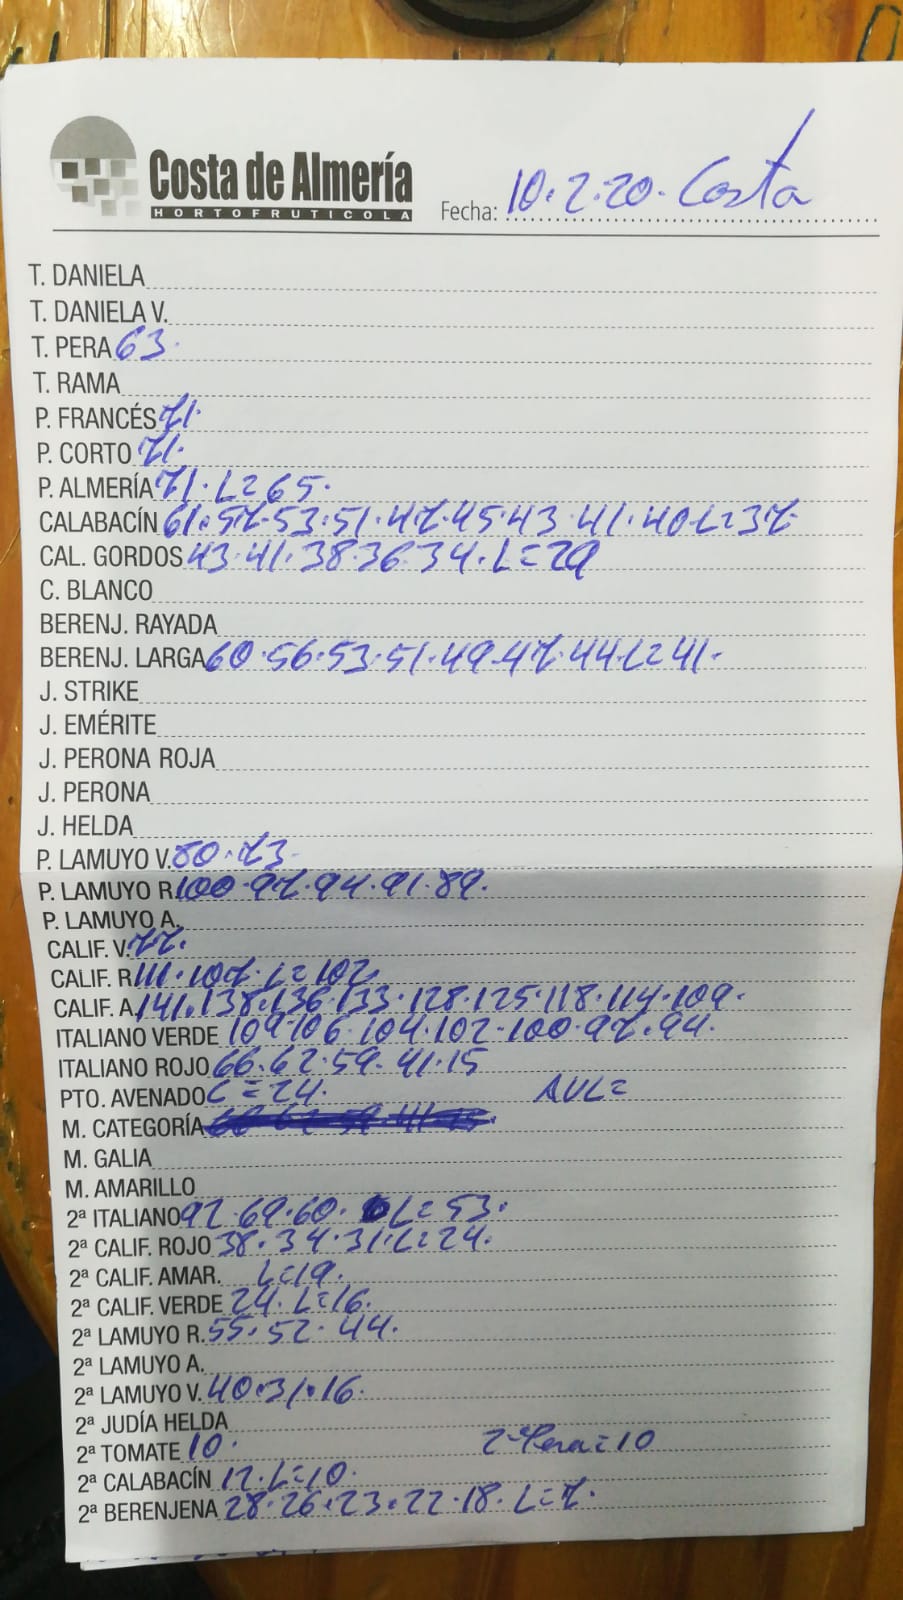 Costa de Almería
HORTOFRUTICOLA
Fecha: 10.2.20. Costa
T. DANIELA
T. DANIELA V.
T. PERA 63.
T. RAMA
P. FRANCÉS 71.
P. CORTO 71.
P. ALMERÍA 71. L=65.
CALABACÍN 61.57.53.51.47.45.43.41.40 L=37
CAL. GORDOS 43.41.38.36.34. L=29
C. BLANCO
BERENJ. RAYADA
BERENJ. LARGA 60.56.53.51.49.47.44 L=41.
J. STRIKE
J. EMÉRITE
J. PERONA ROJA
J. PERONA
J. HELDA
P. LAMUYO V. 80.73.
P. LAMUYO R. 100.97.94.91.89.
P. LAMUYO A.
CALIF. V. 77.
CALIF. R. 111.107. L=102.
CALIF. A. 141.138.136.133.128.125.118.114.109.
ITALIANO VERDE 109.106.104.102.100.97.94.
ITALIANO ROJO 66.62.59.41.15
PTO. AVENADO C=24. AVL=
M. CATEGORÍA
M. GALIA
M. AMARILLO
2ª ITALIANO 92.69.60. L=53.
2ª CALIF. ROJO 38.34.31. L=24.
2ª CALIF. AMAR. L=19.
2ª CALIF. VERDE 24. L=16.
2ª LAMUYO R. 55.52.44.
2ª LAMUYO A.
2ª LAMUYO V. 40.31.16.
2ª JUDÍA HELDA
2ª TOMATE 10. 2ª Pera=10
2ª CALABACÍN 12. L=10.
2ª BERENJENA 28.26.23.22.18. L=7.